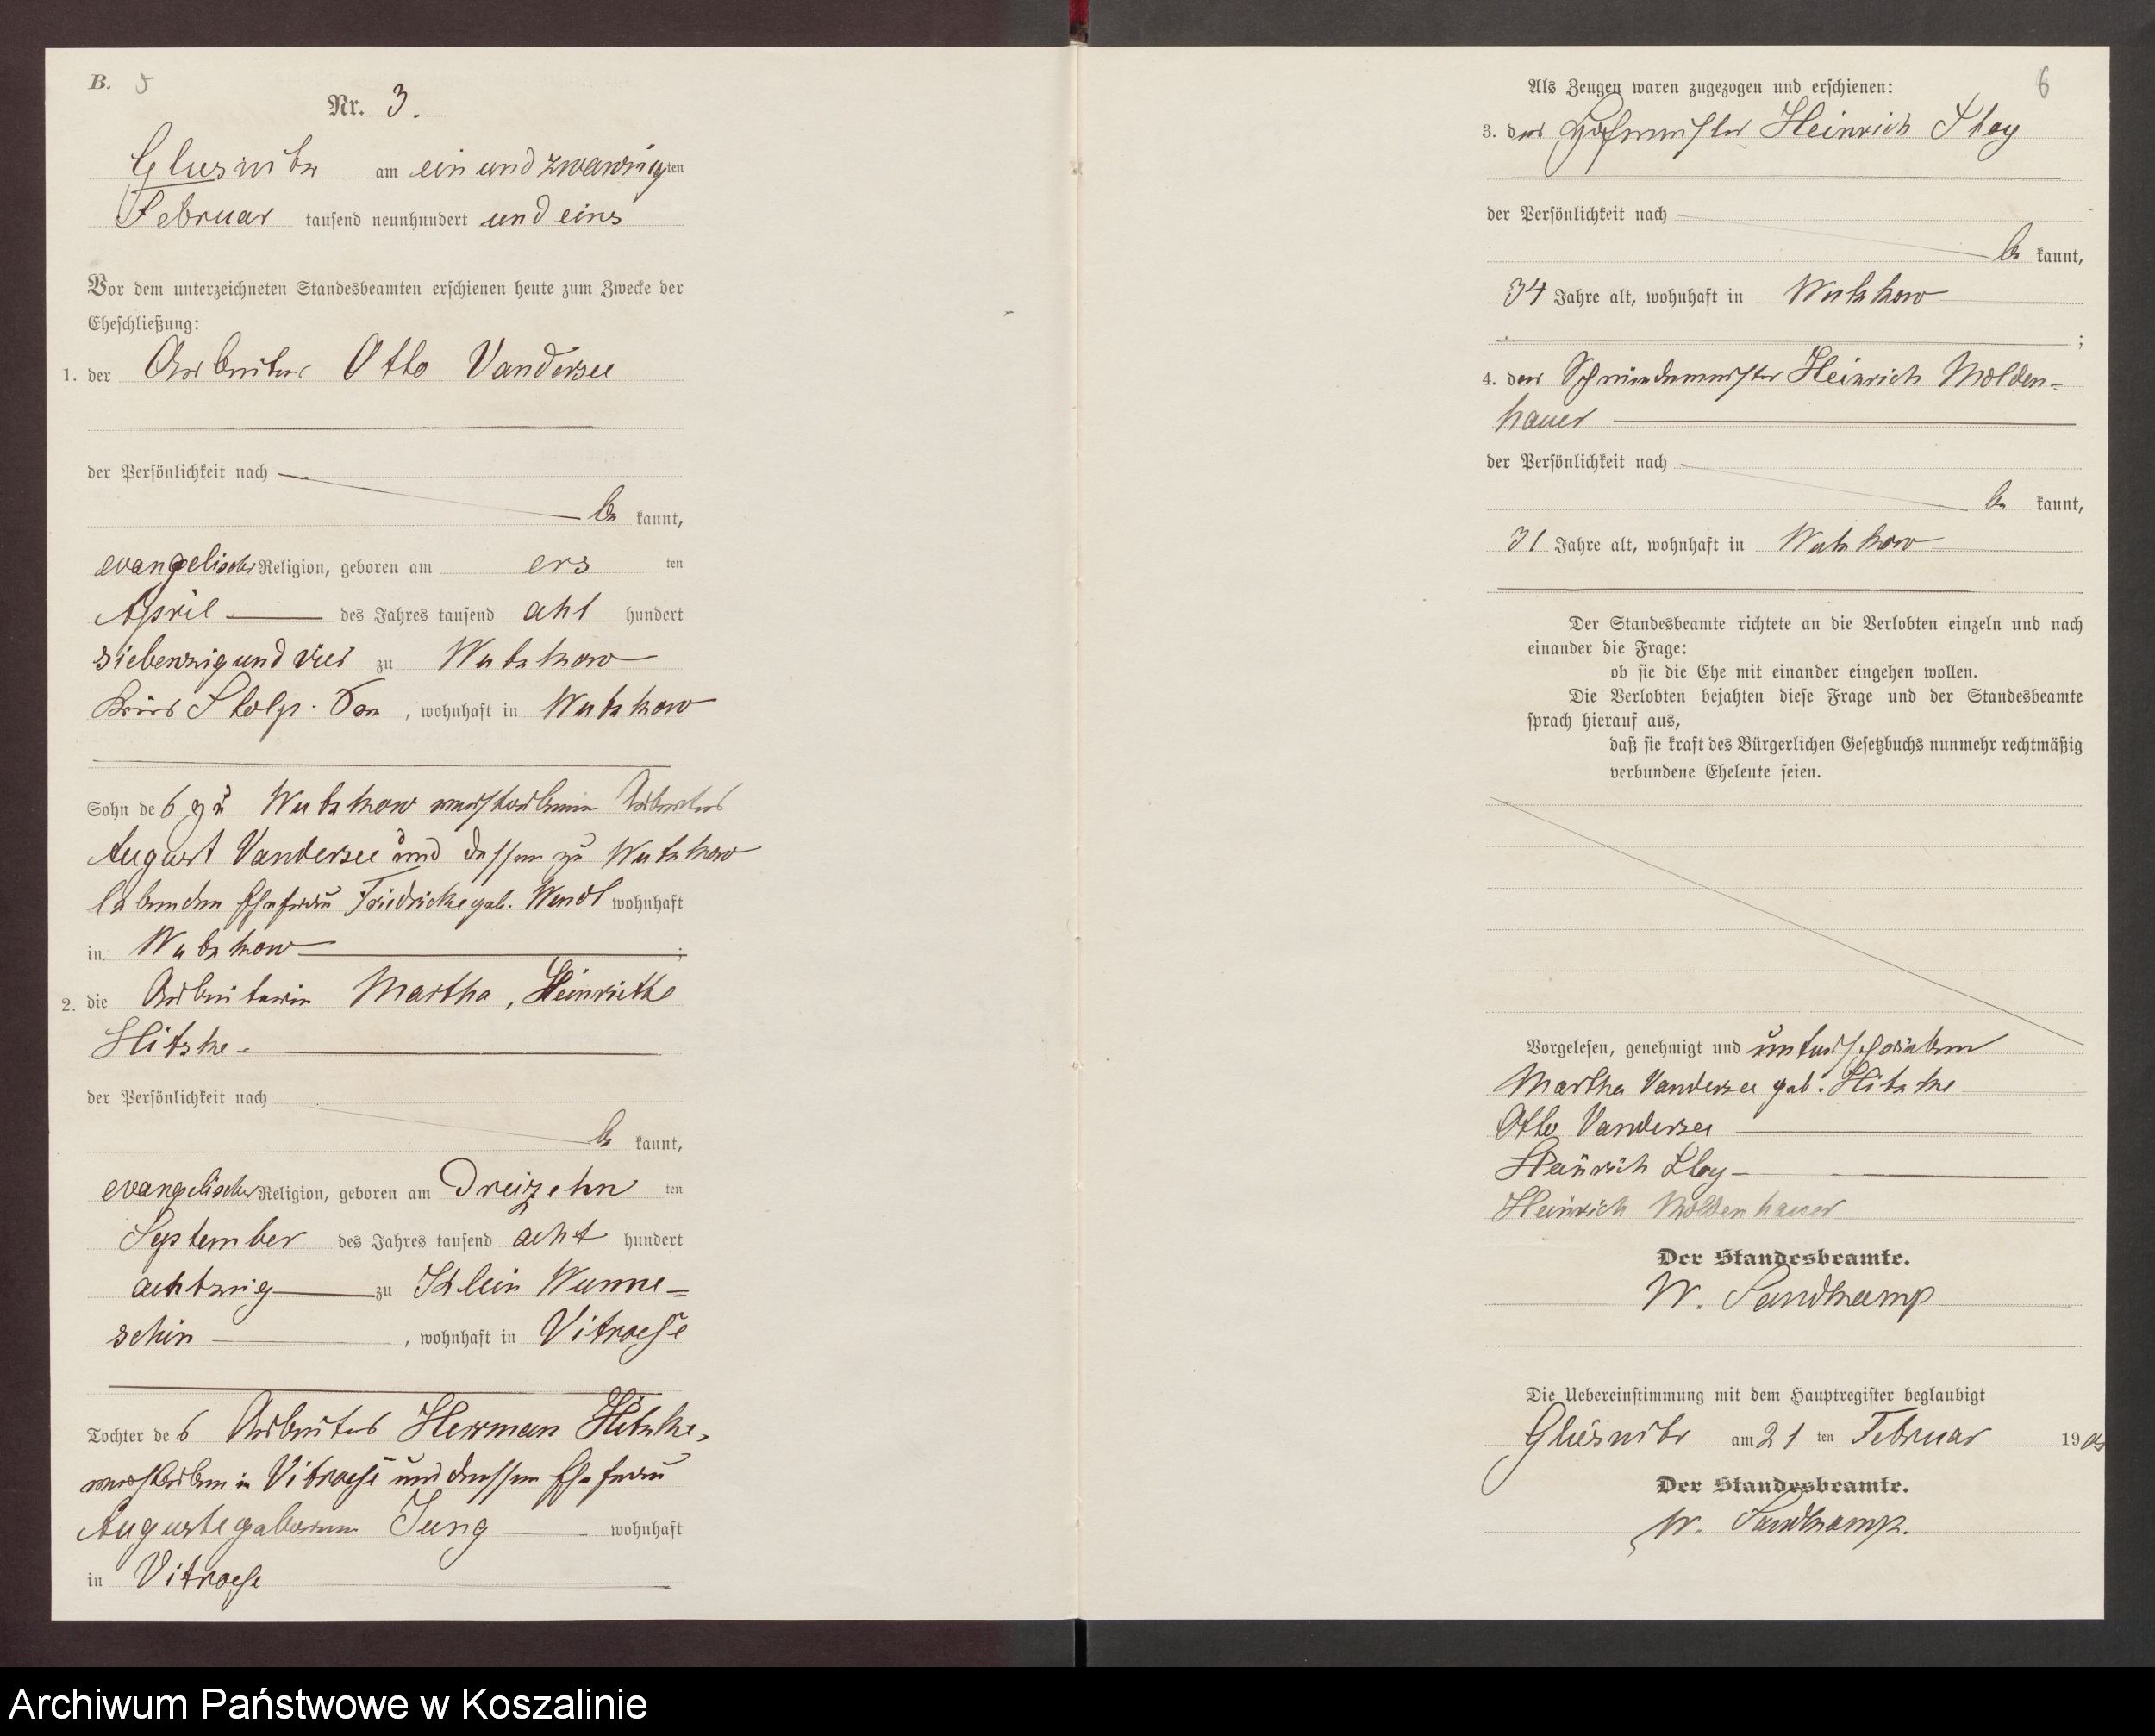 B. 5
Nr. 3.
am ein und zwanzigten
Februar tausend neunhundert und eins
Vor dem unterzeichneten Standesbeamten erschienen heute zum Zwecke der
Eheschließung:
1. der Arbeiter Otto Vandersee
der Persönlichkeit nach
be kannt,
evangelischer Religion, geboren am ers ten
April des Jahres tausend acht hundert
siebenzig und vier zu Wutzkow
Kreis Stolp. , wohnhaft in Wutzkow
Sohn des zu Wutzkow verstorbenen Arbeiters
August Vandersee und dessen zu Wutzkow
lebenden Ehefrau Friedricke geb. Wendt wohnhaft
in Wutzkow ;
2. die Arbeiterin Martha, Heinriette
Hitzke
der Persönlichkeit nach
be kannt,
evangelischer Religion, geboren am Dreizehn ten
September des Jahres tausend acht hundert
achtzig zu Klein Wunne=
schin , wohnhaft in Vitroese
Tochter des Arbeiters Herrman Hitzke,
verstorben in Vitroese und dessen Ehefrau
Auguste geborene Jung wohnhaft
in Vitroese
6
Als Zeugen waren zugezogen und erschienen:
3. der Hofmeister Heinrich
der Persönlichkeit nach
be kannt,
34 Jahre alt, wohnhaft in Wutzkow
;
4. der Schmiedemeister Heinrich Molden=
hauer
der Persönlichkeit nach
be kannt,
31 Jahre alt, wohnhaft in Wutzkow
Der Standesbeamte richtete an die Verlobten einzeln und nach
einander die Frage:
ob sie die Ehe mit einander eingehen wollen.
Die Verlobten bejahten diese Frage und der Standesbeamte
sprach hierauf aus,
daß sie kraft des Bürgerlichen Gesetzbuchs nunmehr rechtmäßig
verbundene Eheleute seien.
Vorgelesen, genehmigt und unterschrieben
Martha Vandersee geb. Hitzke
Otto Vandersee
Heinrich
Heinrich Moldenhauer
Der Standesbeamte.
W. Sandkamp
Die Uebereinstimmung mit dem Hauptregister beglaubigt
am 21 ten Februar 1901
Der Standesbeamte.
W. Sandkamp.
Archiwum Państwowe w Koszalinie